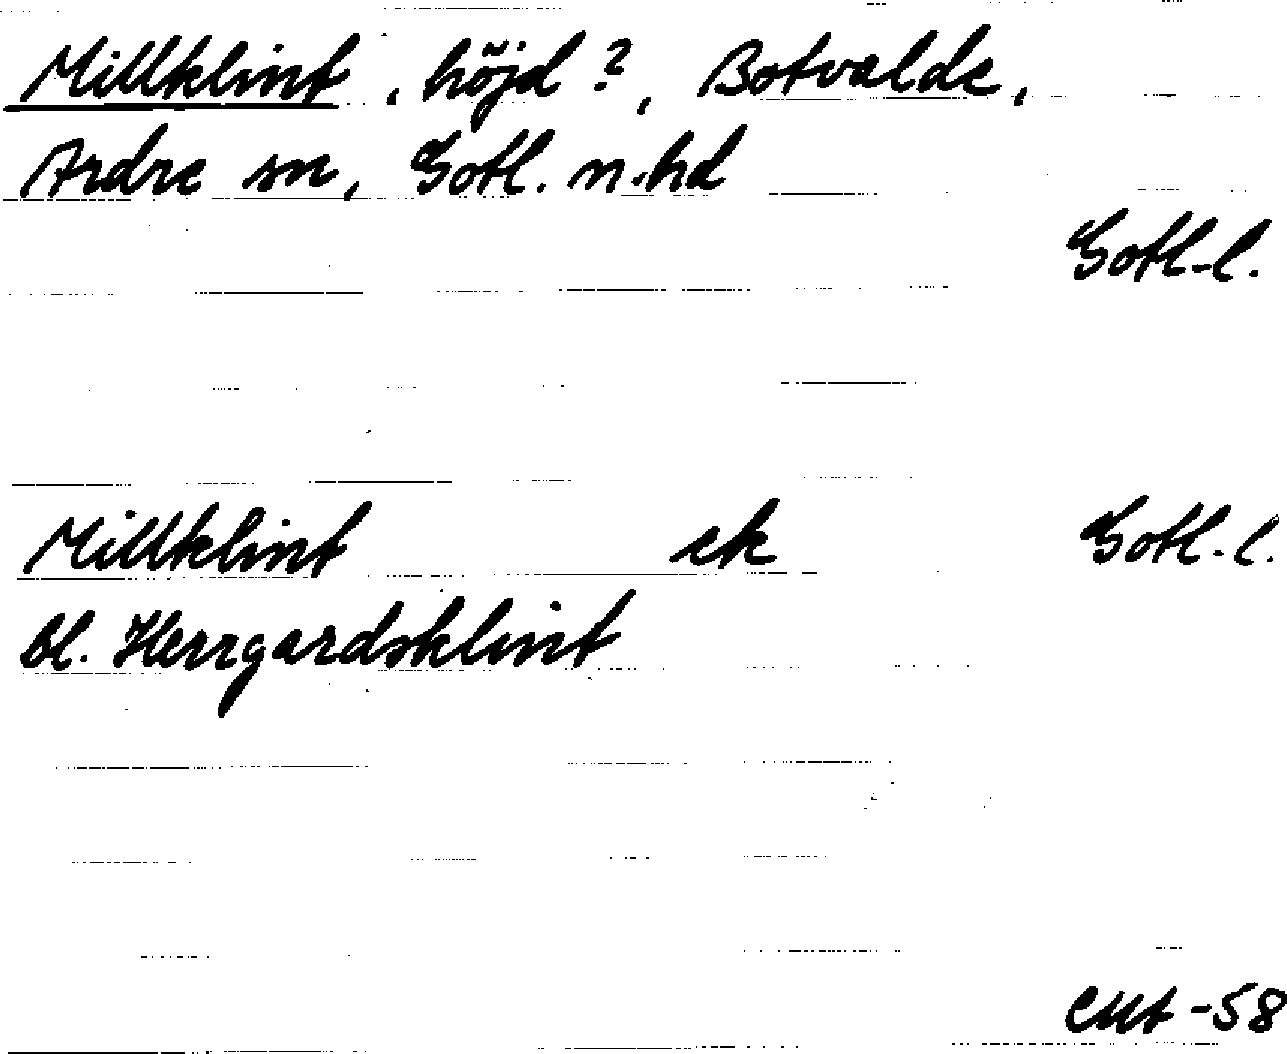 Millklint, höjd?, Botvalde,
Ardre sn, Gotl. n. hd
Gotl-l.
Millklint ek Gotl.-l.
Bl. Herrgardsklint
-58